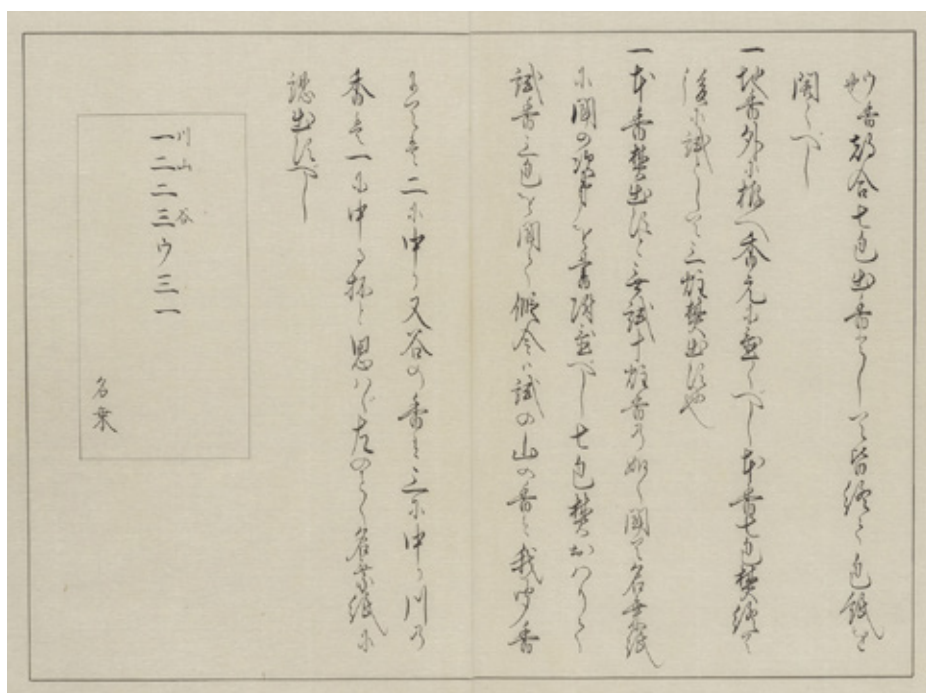 香都合七包出香として皆終て包紙を
開くべし
一地香外に拵へ香元に置くべし本香七包焚終て
後に試として三炷焚出す也
一本香焚出すこと無試十炷香の如く聞て名乗紙
に聞の次第を書附置べし七包焚おはりて
試香三包を聞て假令ハ試の山の香は我聞香
にては二に中り又谷の香は三に中り川の
香は一に中る抔と思はゞ左の如く名乗紙に
認出すべし
川山 谷
一二二三ウ三一
名乗